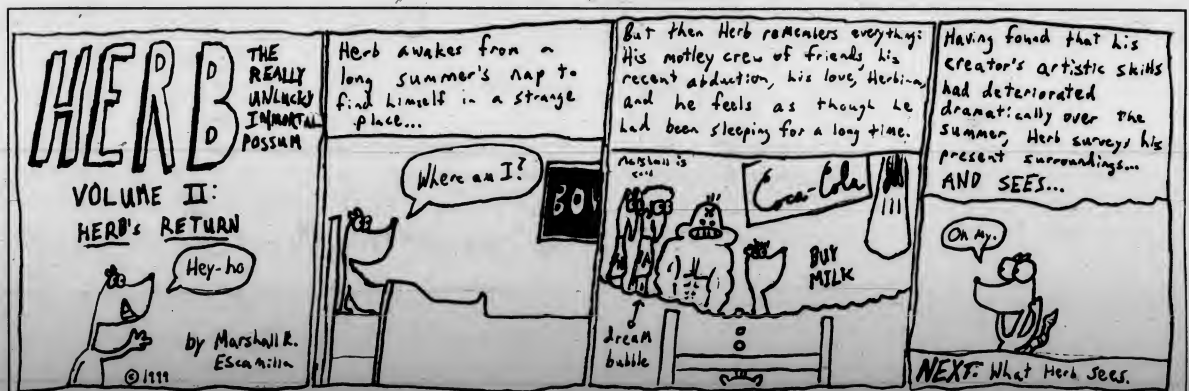 HERB
THE
REALLY
UNLUCKY
IMMORTAL
POSSUM
VOLUME II:
HERB's RETURN
Hey-ho
by Marshall R.
Escamilla
© 1999
Herb awakes from a
long summer's nap to
find himself in a strange
place...
Where am I?
BOY
But then Herb remembers everything:
His motley crew of friends, his
recent abduction, his love, Herbina,
and he feels as though he
had been sleeping for a long time.
Marshall is
cool
Coca-Cola
BUY
MILK
dream
bubble
Having found that his
creator's artistic skills
had deteriorated
dramatically over the
summer, Herb surveys his
present surroundings...
AND SEES...
Oh my.
NEXT: What Herb sees.